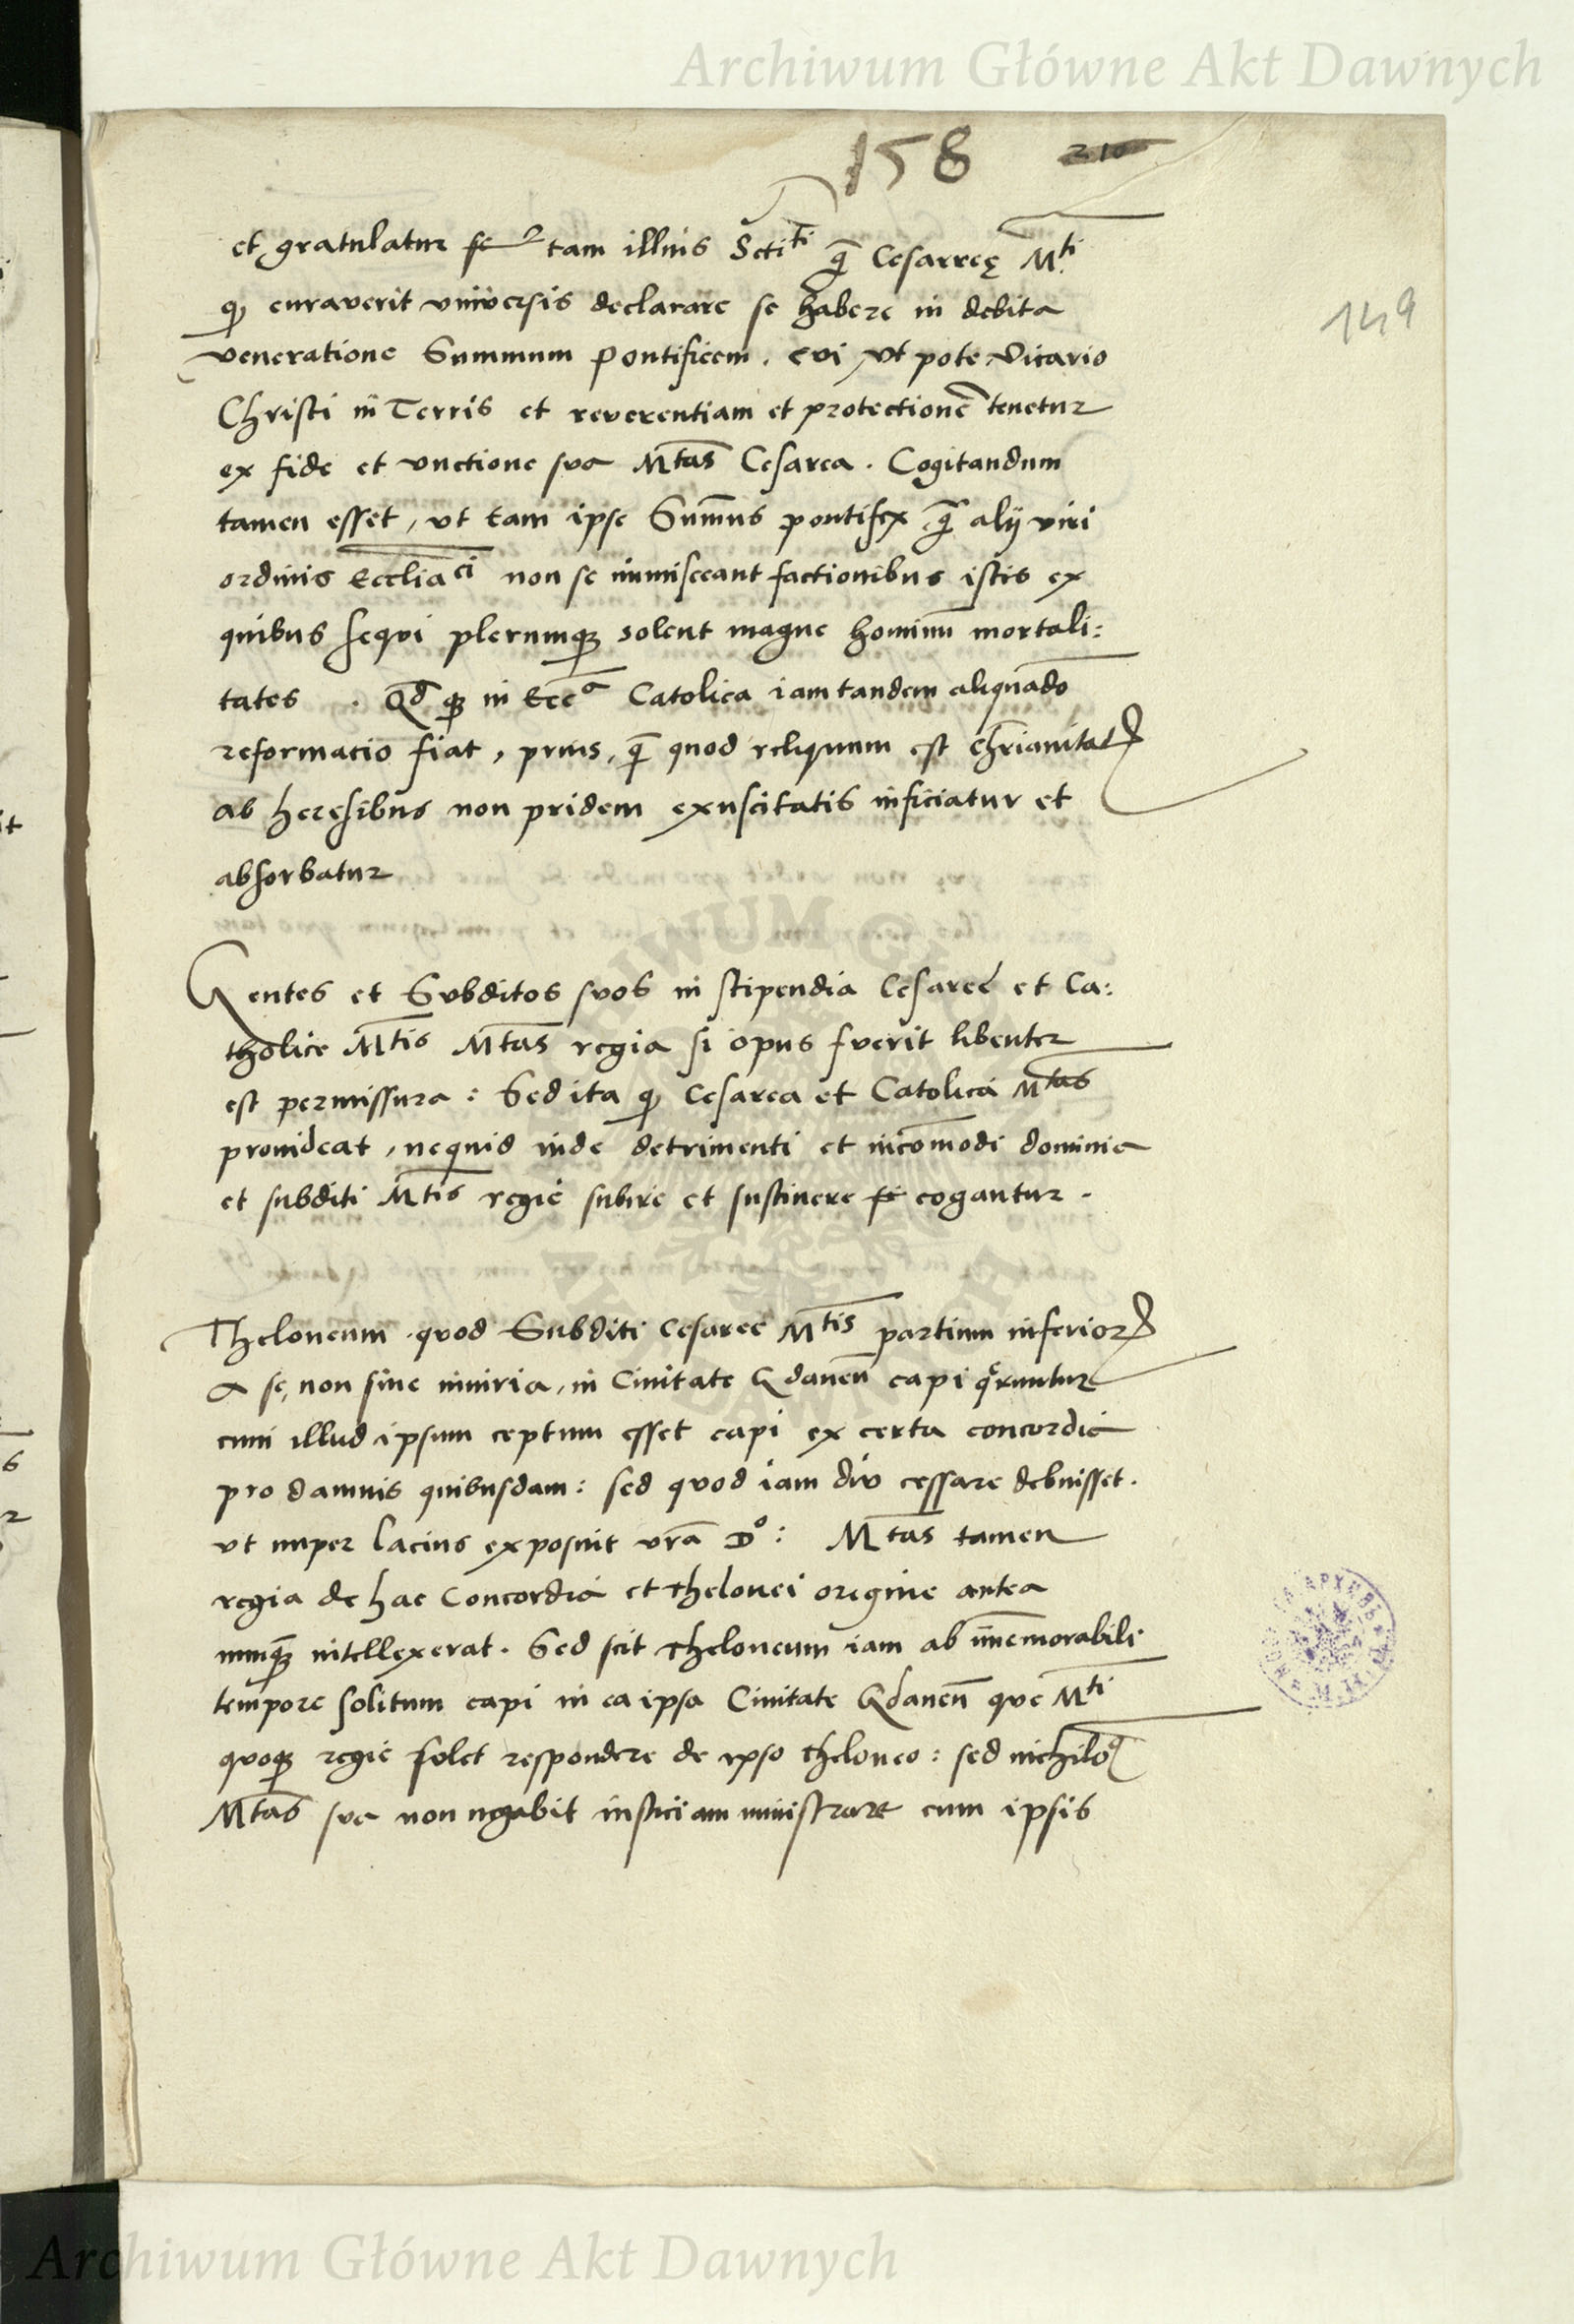 Archiwum Główne Akt Dawnych
158
149
et gratulatur tam illius Sctiti q̄ Cesarreę Mti
q̨ curaverit universis declarare se habere in debita
veneratione Summum Pontificem. cvi vt pote Vicario
Christi in Terris et reverentiam et protectionē tenetur
ex fide et vnctione sva Mtas Cesarea. Cogitandum
tamen esset, vt tam ipse Sum̄us pontifex q̄ alij viri
ordinis Eccliaci non se immisceant factionibus istis ex
quibus seqvi plerumq; solent magne hominū mortali:
tates. Qd̄ q; in Ecca Catolica iam tandem aliquādo
reformacio fiat, prius, q̄ quod reliquum est chrianitat
ab heresibus non pridem exuscitatis inficiatur et
absorbatur
Gentes et Svbditos svos in stipendia Cesareę et Ca:
tholice Mtis Mtas regia si opus fverit libenter
est permissura: Sed ita q̨ Cesarea et Catolica Mtas
provideat, nequid inde detrimenti et incōmodi dominia
et subditi Mtis regie subire et sustinere cogantur.
Theloneum quod Subditi Cesaree Mtis partium inferior
a se, non sine iniuria, in Civitate Gdaneñ capi qruntur
cum illud ipsum ceptum esset capi ex certa concordia
pro damnis quibusdam: sed qvod iam div cessare debuisset.
vt nuper lacius exposuit vrā Do: Mtas tamen
regia de hac Concordia et thelonei origine antea
numq; intellexerat. Sed scit theloneum iam ab im̄emorabili
tempore solitum capi in ea ipsa Civitate Gdaneñ qve Mti
qvoq; regie solet respondere de ipso theloneo: sed nichiloq
Mtas sva non ngabit insticiam ministrare cum ipsis
Archiwum Główne Akt Dawnych